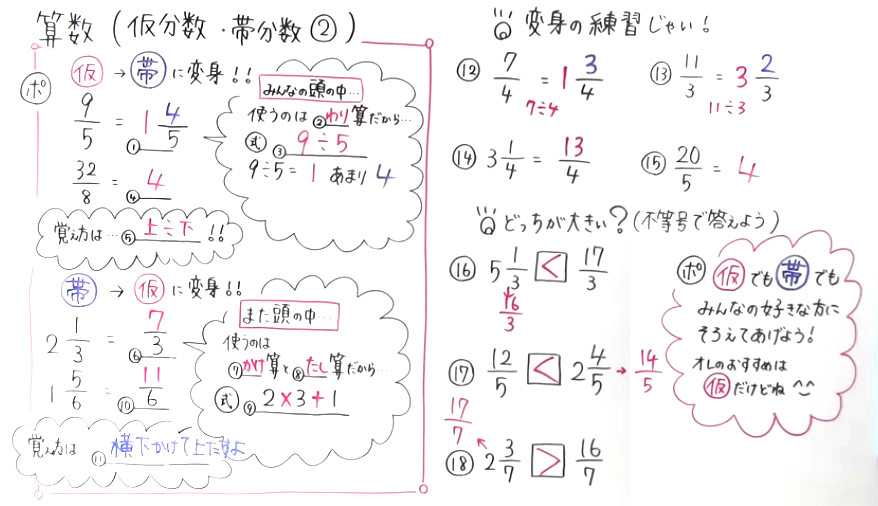 算数(仮分数・帯分数②)
ポ 仮→帯に変身!!
9/5 = 1 4/5 ①
32/8 = 4 ④
みんなの頭の中…
使うのは②わり算だから…
式 ③ 9÷5
9÷5=1あまり4
覚え方は…⑤上÷下!!
帯→仮に変身!!
2 1/3 = 7/3 ⑥
1 5/6 = 11/6 ⑩
また頭の中…
使うのは
⑦かけ算と⑧たし算だから…
式 ⑨ 2×3+1
覚え方は ⑪横下かけて上たすよ
変身の練習じゃい!
⑫ 7/4 = 1 3/4
7÷4
⑬ 11/3 = 3 2/3
11÷3
⑭ 3 1/4 = 13/4
⑮ 20/5 = 4
どっちが大きい?(不等号で答えよう)
⑯ 5 1/3 < 17/3
16/3
⑰ 12/5 < 2 4/5 → 14/5
17/7
⑱ 2 3/7 > 16/7
ポ 仮でも帯でも
みんなの好きな方に
そろえてあげよう!
オレのおすすめは
仮だけどね ^^